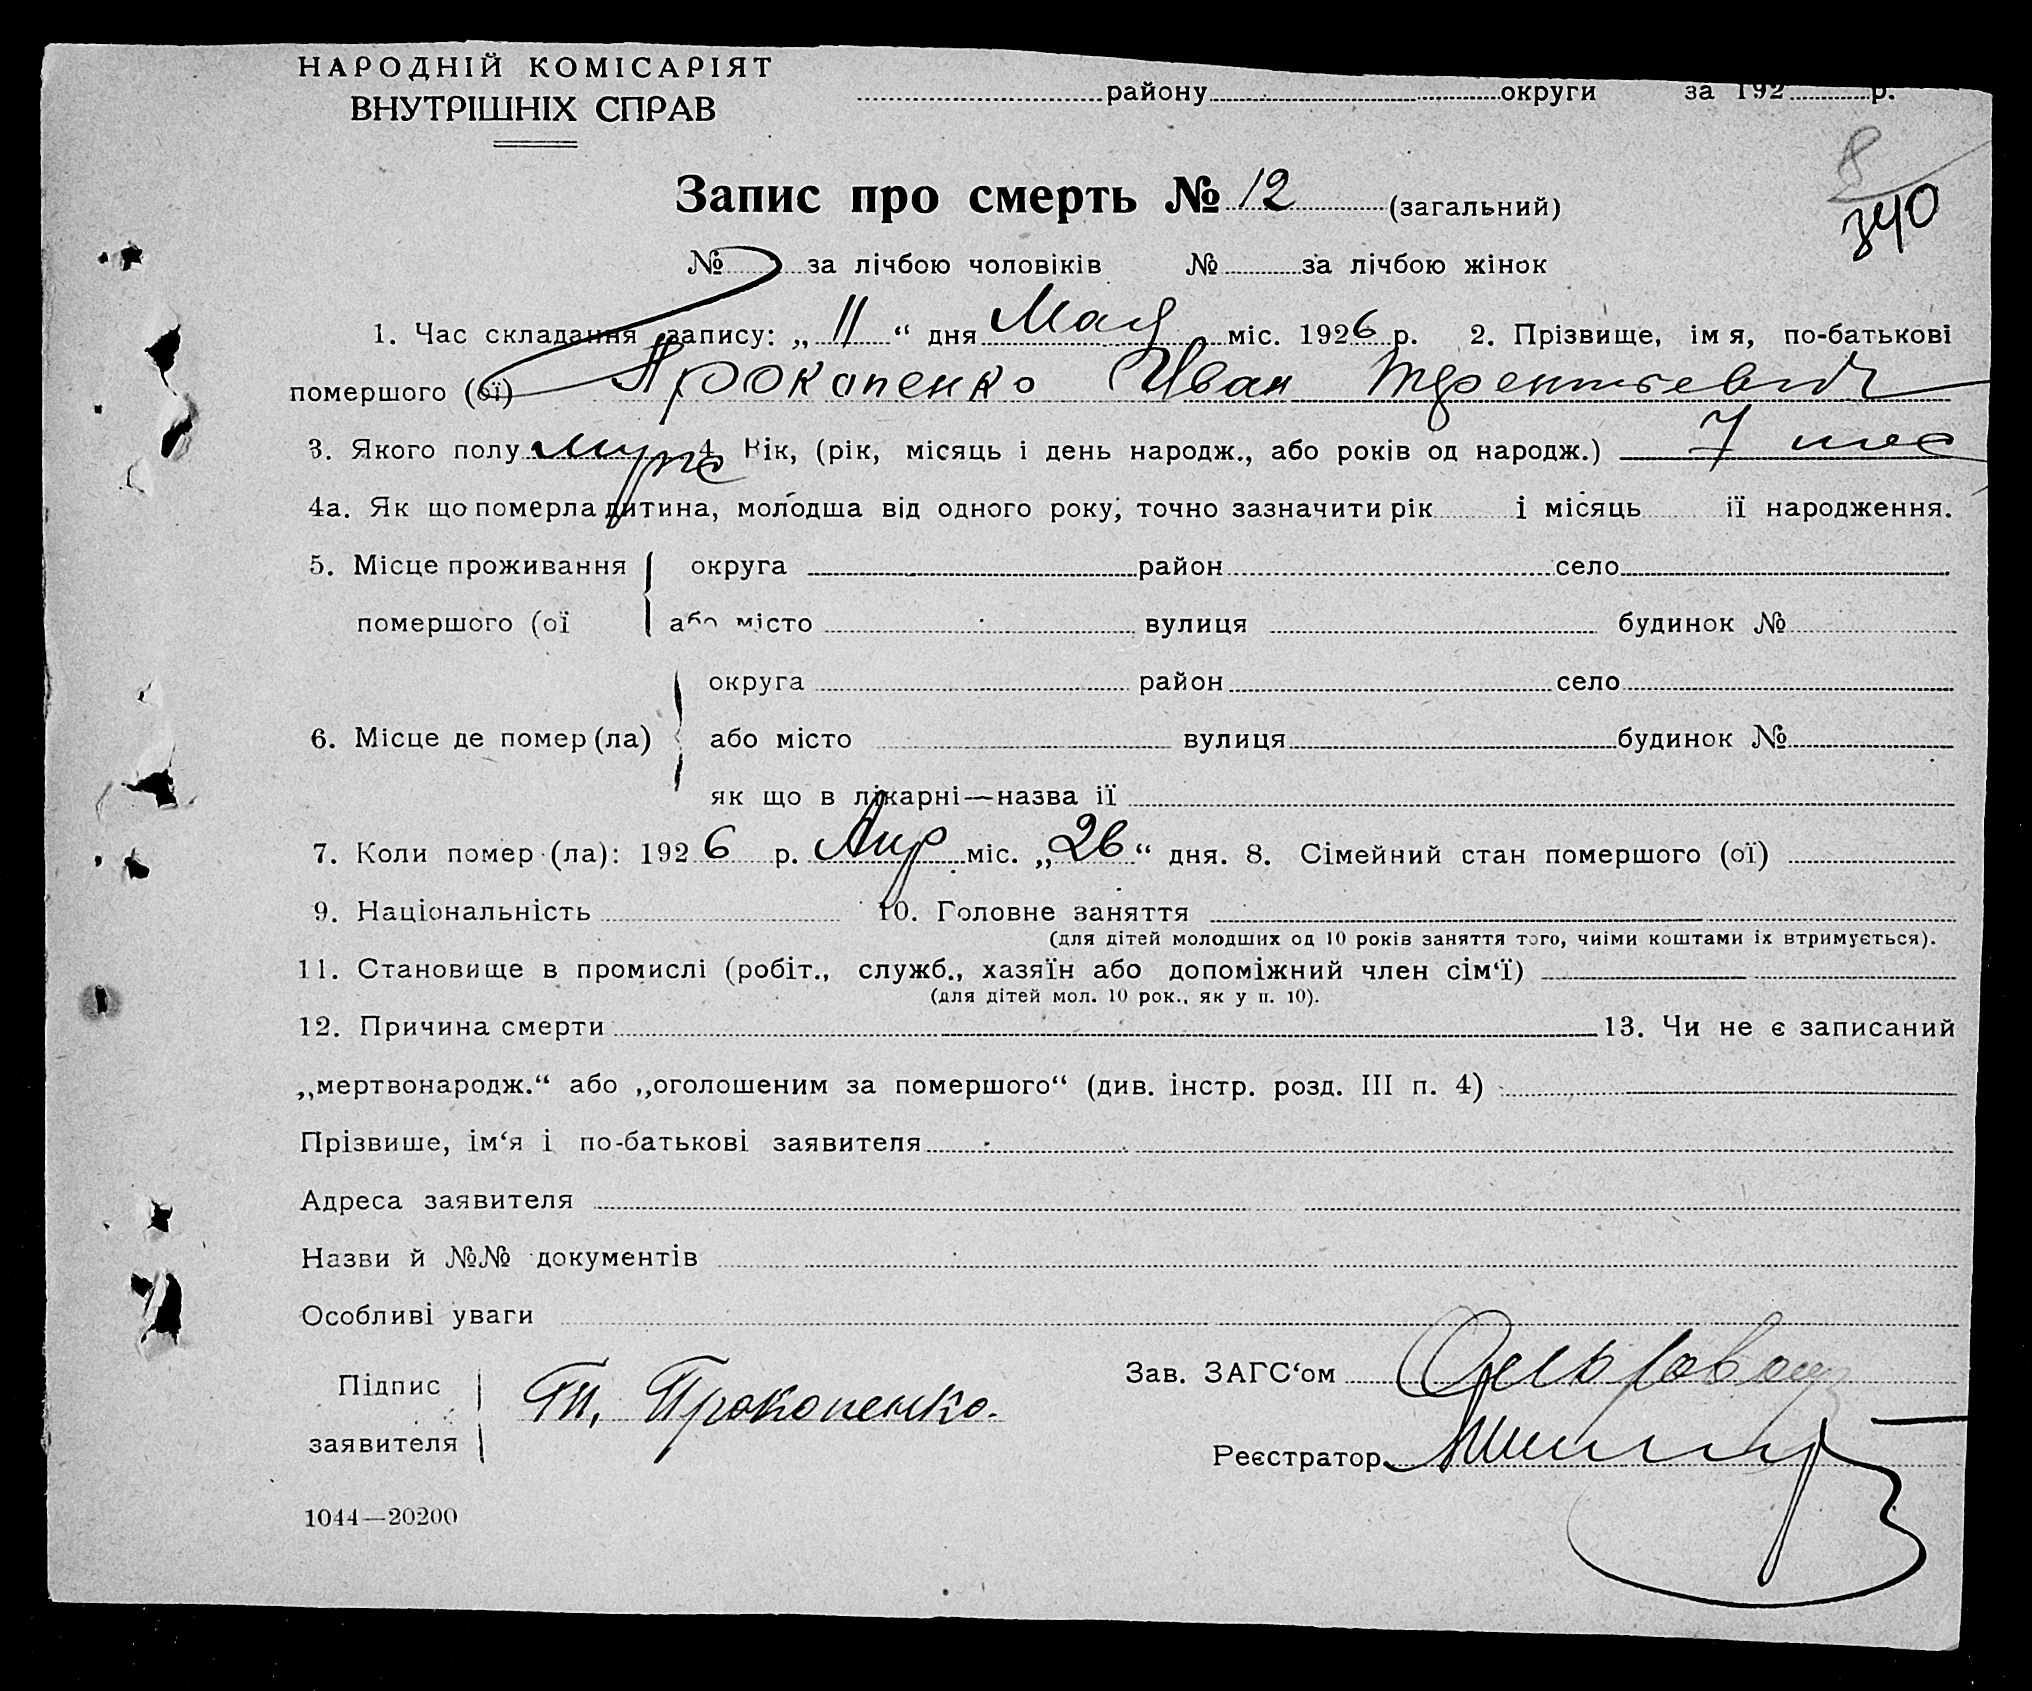 НАРОДНІЙ КОМІСАРІЯТ
ВНУТРІШНІХ СПРАВ
району округи за 192 р.
8
340
Запис про смерть № 12 (загальний)
№ за лічбою чоловіків № за лічбою жінок
1. Час складання запису: „ 11 “ дня Мая міс. 1926 р. 2. Прізвище, імя, по-батькові
помершого (ої) Прокопенко Иван Терентьевич
3. Якого полу муж 4. Вік, (рік, місяць і день народж., або років од народж.) 7 мес
4а. Як що померла дитина, молодша від одного року, точно зазначити рік і місяць її народження.
5. Місце проживання округа район село
помершого (ої або місто вулиця будинок №
округа район село
6. Місце де помер (ла) або місто вулиця будинок №
як що в лікарні—назва її
7. Коли помер (ла): 1926 р. Апр міс. „ 26 “ дня. 8. Сімейний стан помершого (ої)
9. Національність 10. Головне заняття
(для дітей молодших од 10 років заняття того, чиїми коштами їх втримується).
11. Становище в промислі (робіт., служб., хазяїн або допоміжний член сім‘ї)
(для дітей мол. 10 рок., як у п. 10).
12. Причина смерти 13. Чи не є записаний
„мертвонародж.“ або „оголошеним за помершого“ (див. інстр. розд. III п. 4)
Прізвише, ім‘я і по-батькові заявителя
Адреса заявителя
Назви й №№ документів
Особливі уваги
Підпис
заявителя Т. Прокопенко.
Зав. ЗАГС‘ом
Реєстратор
1044—20200